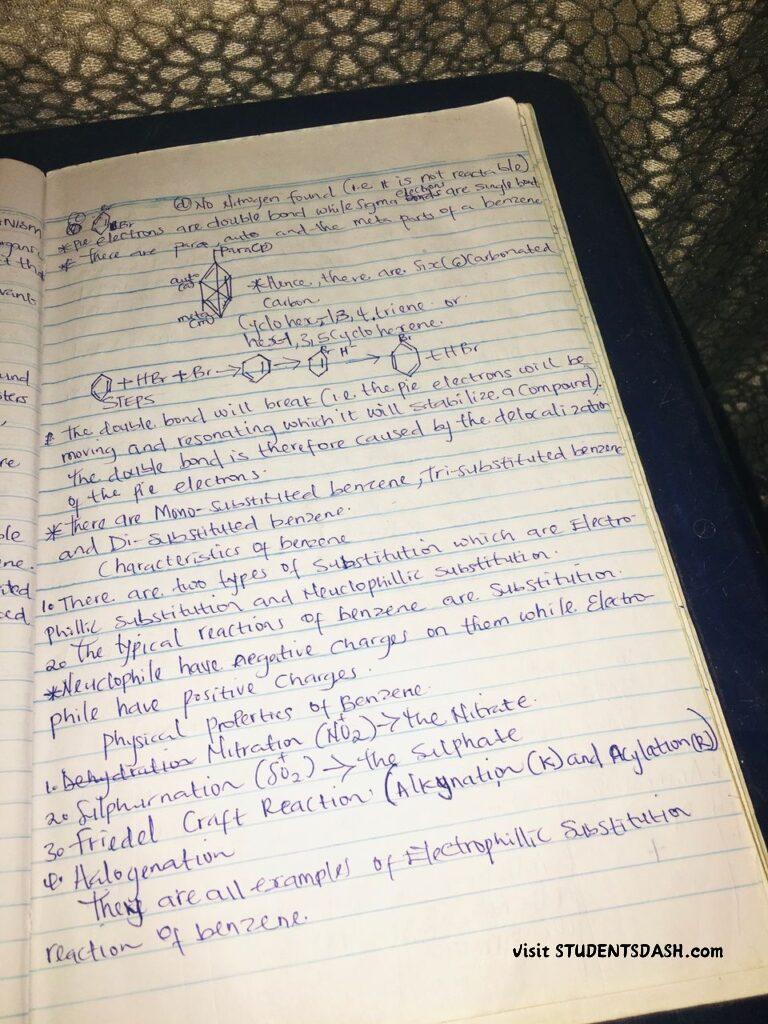 (d) No Nitrogen found (i.e it is not reactable)
Br
* Pie electrons are double bond while sigma electrons bonds are single bond
* There are para, auto and the meta parts of a benzene
Para(P)
auto
(a)
meta
(m)
* Hence, there are six (6) carbonated
carbon.
Cyclohex-1,3,4,triene or
hex-1,3,5 cyclohexene.
+ HBr + Br → → Br H → Br + HBr
STEPS
* The double bond will break (i.e. the pie electrons will be
moving and resonating which it will stabilize a compound).
The double bond is therefore caused by the delocalization
of the pie electrons.
* There are Mono-substituted benzene, Tri-substituted benzene
and Di-substituted benzene.
Characteristics of benzene
1. There are two types of substitution which are Electro-
phillic substitution and Neuclophillic substitution.
2. The typical reactions of benzene are substitution.
* Neuclophile have negative charges on them while Electro-
phile have positive charges.
Physical properties of Benzene.
1. Dehydration Nitration (NO2+) → the Nitrate.
2. Silphurnation (SO2+) → the Silphate
3. Friedel Craft Reaction. (Alkynation (K) and Acylation (R))
4. Halogenation
They are all examples of Electrophillic Substitution
reaction of benzene.
nism
organic
t the
vant
und
sters
re
ble
ene.
ited
ced
visit STUDENTSDASH.com